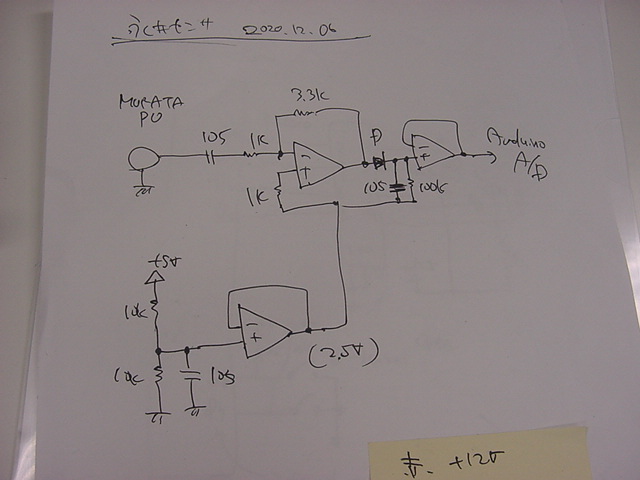 2020.12.06
MURATA
PO
105
1K
3.3K
D
Arduino
A/D
1K
105
100k
+5V
10K
10K
105
(2.5V)
赤. +12V